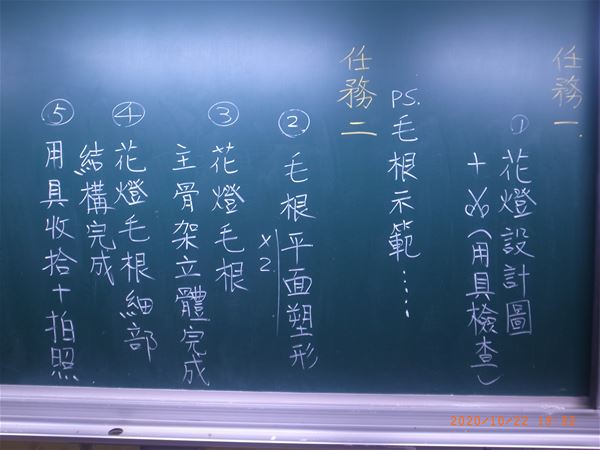 任務一.
① 花燈設計圖
＋✂(用具檢查)
PS. 毛根示範……
任務二
② 毛根平面塑形
x2
③ 花燈毛根
主骨架立體完成
④ 花燈毛根細部
結構完成
⑤ 用具收拾＋拍照